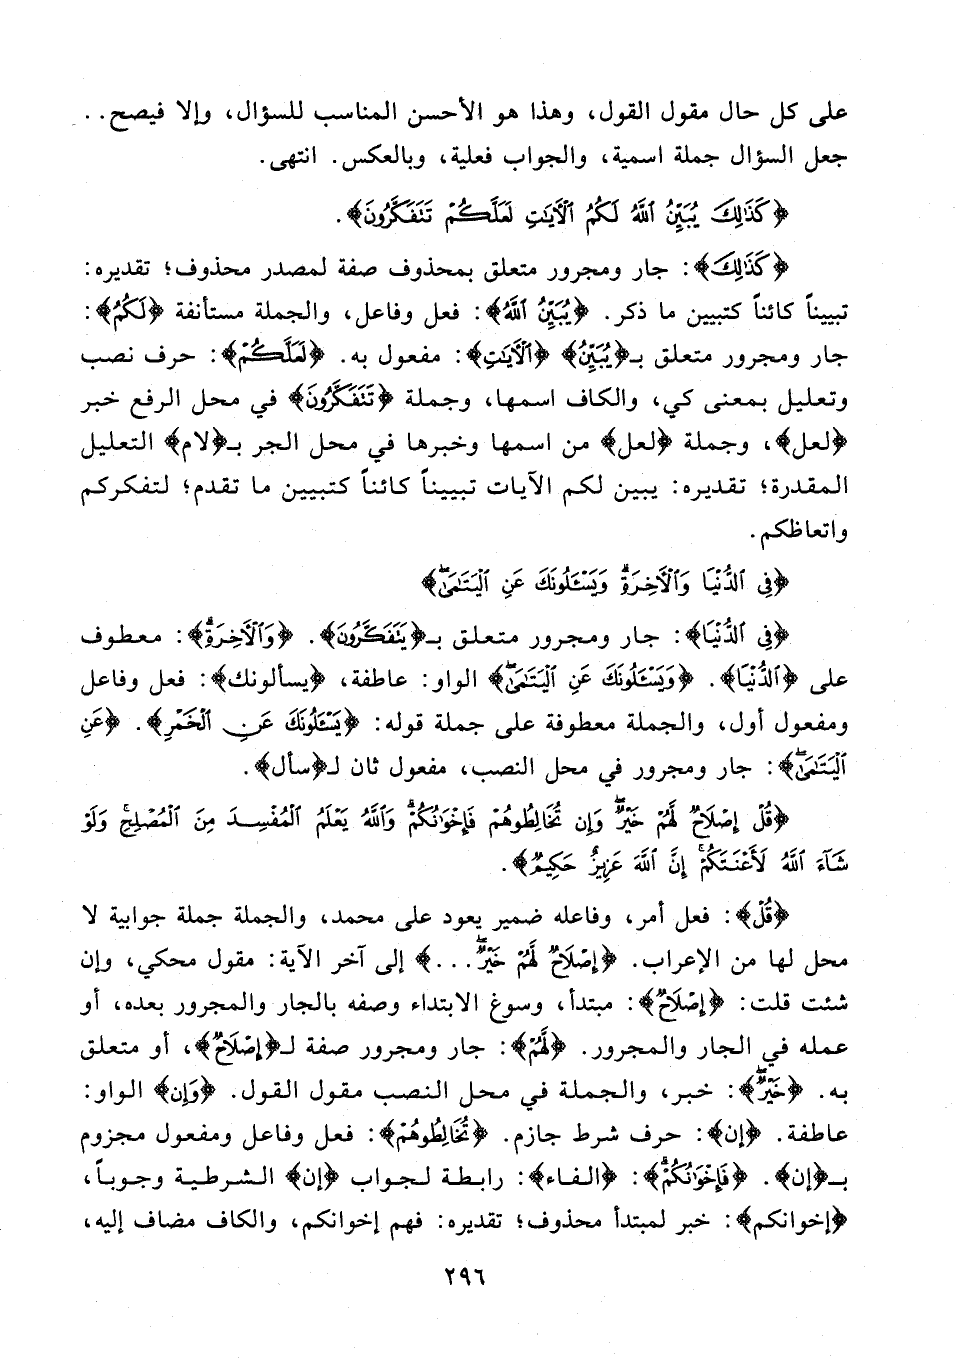 على كل حال مقول القول، وهذا هو الأحسن المناسب للسؤال، وإلا فيصح..
جعل السؤال جملة اسمية، والجواب فعلية، وبالعكس. انتهى.
﴿كَذَٰلِكَ يُبَيِّنُ ٱللَّهُ لَكُمُ ٱلْآيَٰتِ لَعَلَّكُمْ تَتَفَكَّرُونَ﴾.
﴿كَذَٰلِكَ﴾: جار ومجرور متعلق بمحذوف صفة لمصدر محذوف؛ تقديره:
تبييناً كائناً كتبيين ما ذكر. ﴿يُبَيِّنُ ٱللَّهُ﴾: فعل وفاعل، والجملة مستأنفة ﴿لَكُمُ﴾:
جار ومجرور متعلق بـ﴿يُبَيِّنُ﴾ ﴿ٱلْآيَٰتِ﴾: مفعول به. ﴿لَعَلَّكُمْ﴾: حرف نصب
وتعليل بمعنى كي، والكاف اسمها، وجملة ﴿تَتَفَكَّرُونَ﴾ في محل الرفع خبر
﴿لعل﴾، وجملة ﴿لعل﴾ من اسمها وخبرها في محل الجر بـ﴿لام﴾ التعليل
المقدرة؛ تقديره: يبين لكم الآيات تبييناً كائناً كتبيين ما تقدم؛ لتفكركم
واتعاظكم.
﴿فِي ٱلدُّنْيَا وَٱلْآخِرَةِۗ وَيَسْـَٔلُونَكَ عَنِ ٱلْيَتَٰمَىٰۖ﴾
﴿فِي ٱلدُّنْيَا﴾: جار ومجرور متعلق بـ﴿يَتَفَكَّرُونَ﴾. ﴿وَٱلْآخِرَةِۗ﴾: معطوف
على ﴿ٱلدُّنْيَا﴾. ﴿وَيَسْـَٔلُونَكَ عَنِ ٱلْيَتَٰمَىٰۖ﴾ الواو: عاطفة، ﴿يسألونك﴾: فعل وفاعل
ومفعول أول، والجملة معطوفة على جملة قوله: ﴿يَسْـَٔلُونَكَ عَنِ ٱلْخَمْرِ﴾. ﴿عَنِ
ٱلْيَتَٰمَىٰۖ﴾: جار ومجرور في محل النصب، مفعول ثان لـ﴿سأل﴾.
﴿قُلْ إِصْلَاحٌ لَّهُمْ خَيْرٌۖ وَإِن تُخَالِطُوهُمْ فَإِخْوَٰنُكُمْۚ وَٱللَّهُ يَعْلَمُ ٱلْمُفْسِدَ مِنَ ٱلْمُصْلِحِۚ وَلَوْ
شَآءَ ٱللَّهُ لَأَعْنَتَكُمْۚ إِنَّ ٱللَّهَ عَزِيزٌ حَكِيمٌ﴾.
﴿قُلْ﴾: فعل أمر، وفاعله ضمير يعود على محمد، والجملة جملة جوابية لا
محل لها من الإعراب. ﴿إِصْلَاحٌ لَّهُمْ خَيْرٌۖ...﴾ إلى آخر الآية: مقول محكي، وإن
شئت قلت: ﴿إِصْلَاحٌ﴾: مبتدأ، وسوغ الابتداء وصفه بالجار والمجرور بعده، أو
عمله في الجار والمجرور. ﴿لَّهُمْ﴾: جار ومجرور صفة لـ﴿إِصْلَاحٌ﴾، أو متعلق
به. ﴿خَيْرٌۖ﴾: خبر، والجملة في محل النصب مقول القول. ﴿وَإِن﴾ الواو:
عاطفة. ﴿إن﴾: حرف شرط جازم. ﴿تُخَالِطُوهُمْ﴾: فعل وفاعل ومفعول مجزوم
بـ﴿إن﴾. ﴿فَإِخْوَٰنُكُمْۚ﴾: ﴿الفاء﴾: رابطة لجواب ﴿إن﴾ الشرطية وجوباً،
﴿إخوانكم﴾: خبر لمبتدأ محذوف؛ تقديره: فهم إخوانكم، والكاف مضاف إليه،
٢٩٦